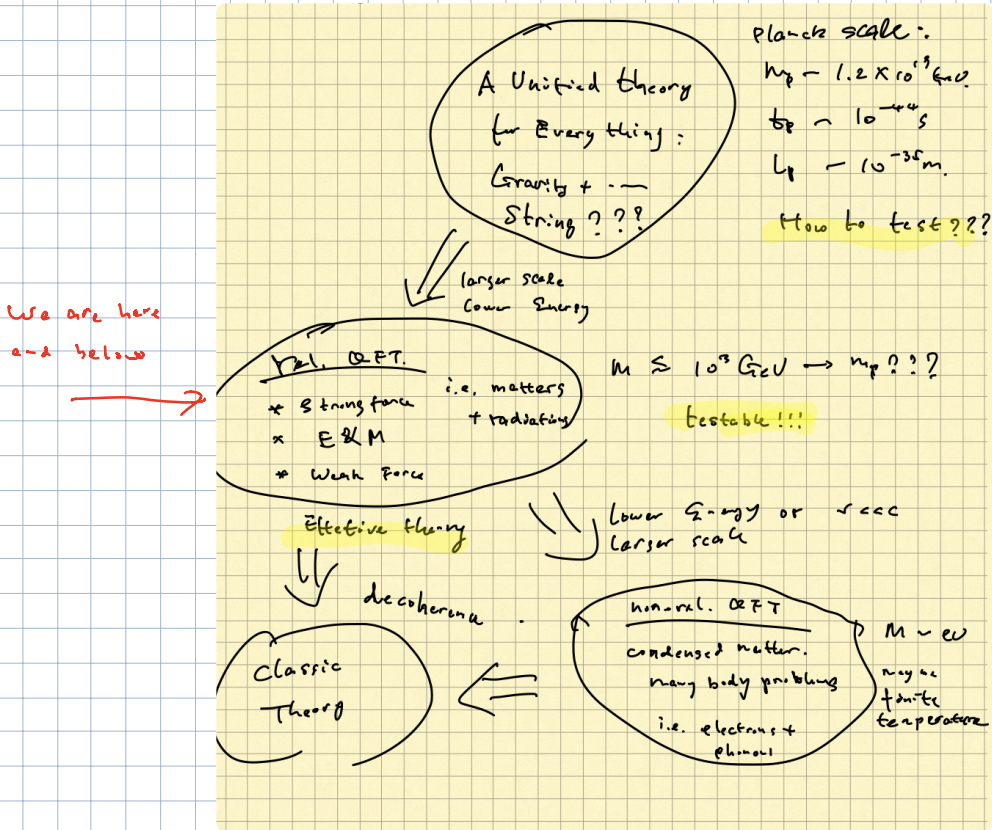 A Unified theory
for Every thing :
Gravity + ·—
String ? ? ?
Planck scale :
mp ~ 1.2 × 10¹⁹ GeV.
tp ~ 10⁻⁴⁴ s
Lp ~ 10⁻³⁵ m.
How to test ???
larger scale
Lower Energy
We are here
and below
rel. QFT.
* Strong force
* E & M
* Weak Force
i.e. matters
+ radiations
M ≲ 10³ GeV → mp ? ? ?
testable !!!
Effetive theory
Lower Energy or v<<c
larger scale
decoherence
Classic
Theory
non-rel. QFT
condensed matter.
many body problems
i.e. electrons +
phonons
M ~ eV
may be
finite
temperature